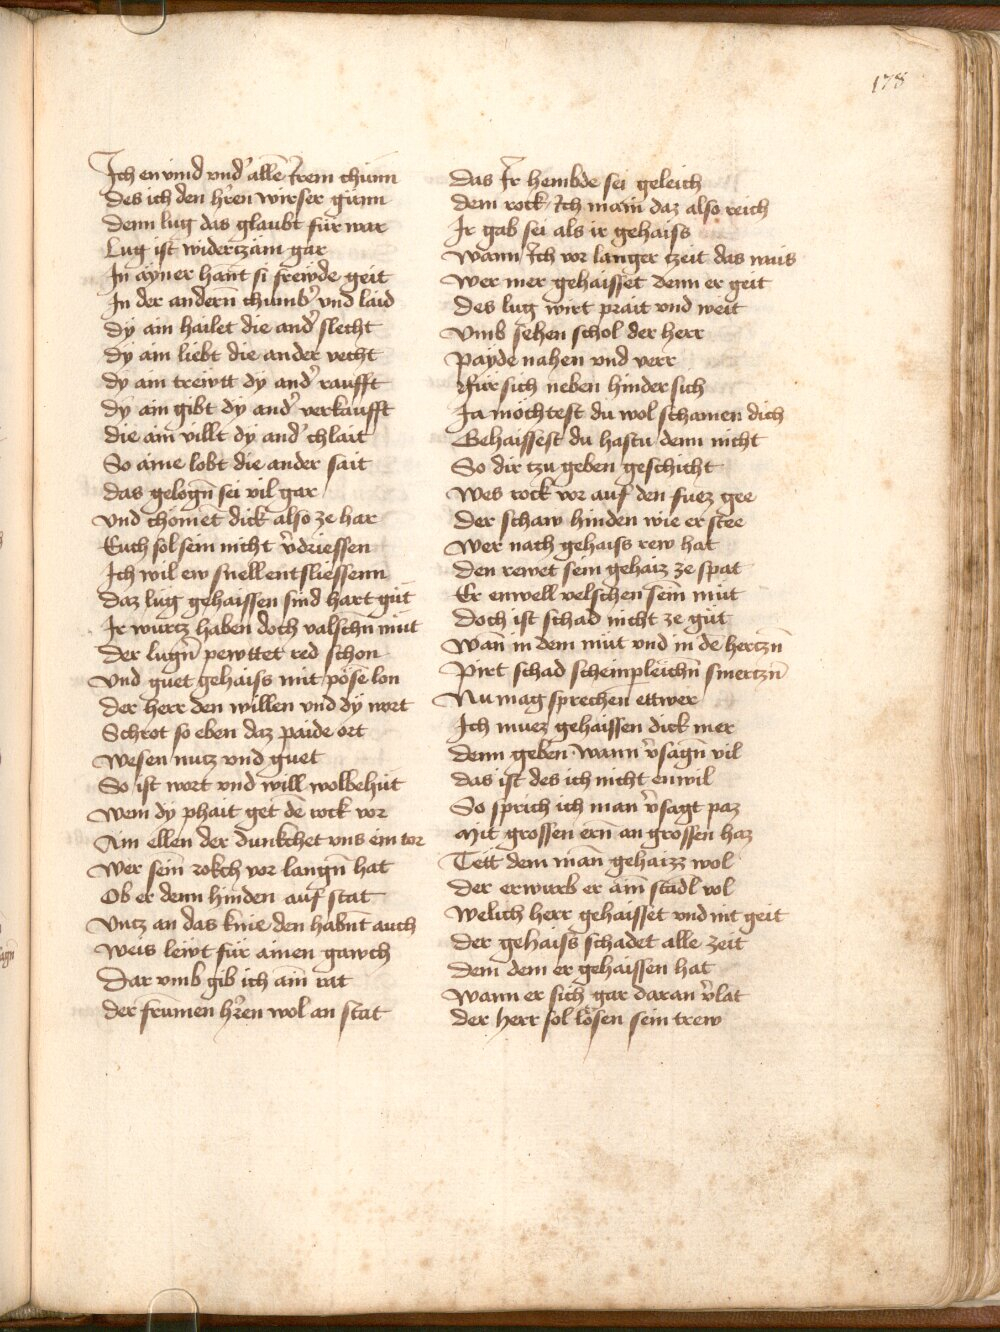 178
Ich en vind vnd' allē irem chunn
des ich den h'ren wirser gunn
denn lug das glaubt für war
Lug ist widertzäm gar
In ayner hant si frewde geit
In der andern̄ chumb' vnd laid
dÿ ain hailet die and' slecht
dÿ ain liebt die ander vecht
dÿ ain trewtt dÿ and' raufft
dÿ ain gibt dÿ and' verkaufft
die ain villt dÿ and' chlait
So aine lobt die ander sait
das gelogn̄ sei vil gar
vnd chömēt dick also ze har
Euch sol sein nicht v'driessen
Ich wil ew snell entsliessenn
daz lug gehaissen sind hart gut
Ir wurtz haben doch valschn̄ mut
der lugn̄ pewttet red schon
vnd guet gehaiss mit pösē lon
der herr den willen vnd dÿ wort
Schrot so eben daz paide ort
wesen nutz vnd guet
So ist wort vnd will wolbehüt
wem dÿ phait get dē rock vor
Ain ellen der dunkchet vns ein tor
wer sein̄ rokch vor langn̄ hat
Ob er denn hinden auf stat
vntz an das knie den habnt auch
weis lewt für ainen gawch
Dar vmb gib ich aīn rat
der frumen h'ren wol an stat
das Ir hembde sei geleich
dem rock Ich main daz also reich
Ir gab sei als ir gehaiss
wann Ich vor langer tzeit das wais
wer mer gehaisset denn er geit
des lug wirt prait vnd weit
vmb sehen schol der herr
payde nahen vnd verr
für sich neben hinder sich
Ja mochtest du wol schamen dich
Gehaissest du hastu denn nicht
So dir tzu geben geschicht
wes rock vor auf den fuez gee
der schaw hinden wie er stee
wer nach gehaiss rew hat
den rewet sein gehaiz ze spat
Er enwell velschen sein̄ mut
doch ist schad nicht ze gut
wan̄ in dem mut vnd in dē hertzn̄
Pirt schad scheinpleichn̄ smertzn̄
Nu mag sprechen ettwer
Ich muez gehaissen dick mer
denn geben wann v'sagn̄ vil
das ist des ich nicht enwil
So sprich ich man v'sagt paz
Mit grossen ern̄ an grossen haz
Tett dem man̄ gehaizz wol
der erwurb er aīn stadl vol
welich herr gehaisset vnd nit geit
der gehaiss schadet alle zeit
dem dem er gehaissen hat
wann er sich gar daran v'lat
der herr sol lösen sein trew